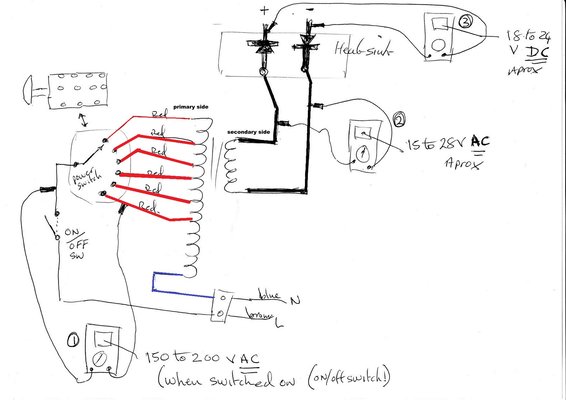 + -
③
18 to 24
V DC
Aprox
Heatsink
primary side
secondary side
Red
Red
Red
Red
Red
power
switch
②
15 to 28V AC
Aprox
ON/
OFF
SW
blue N
brown L
①
150 to 200 V AC
(when switched on (on/off switch!)